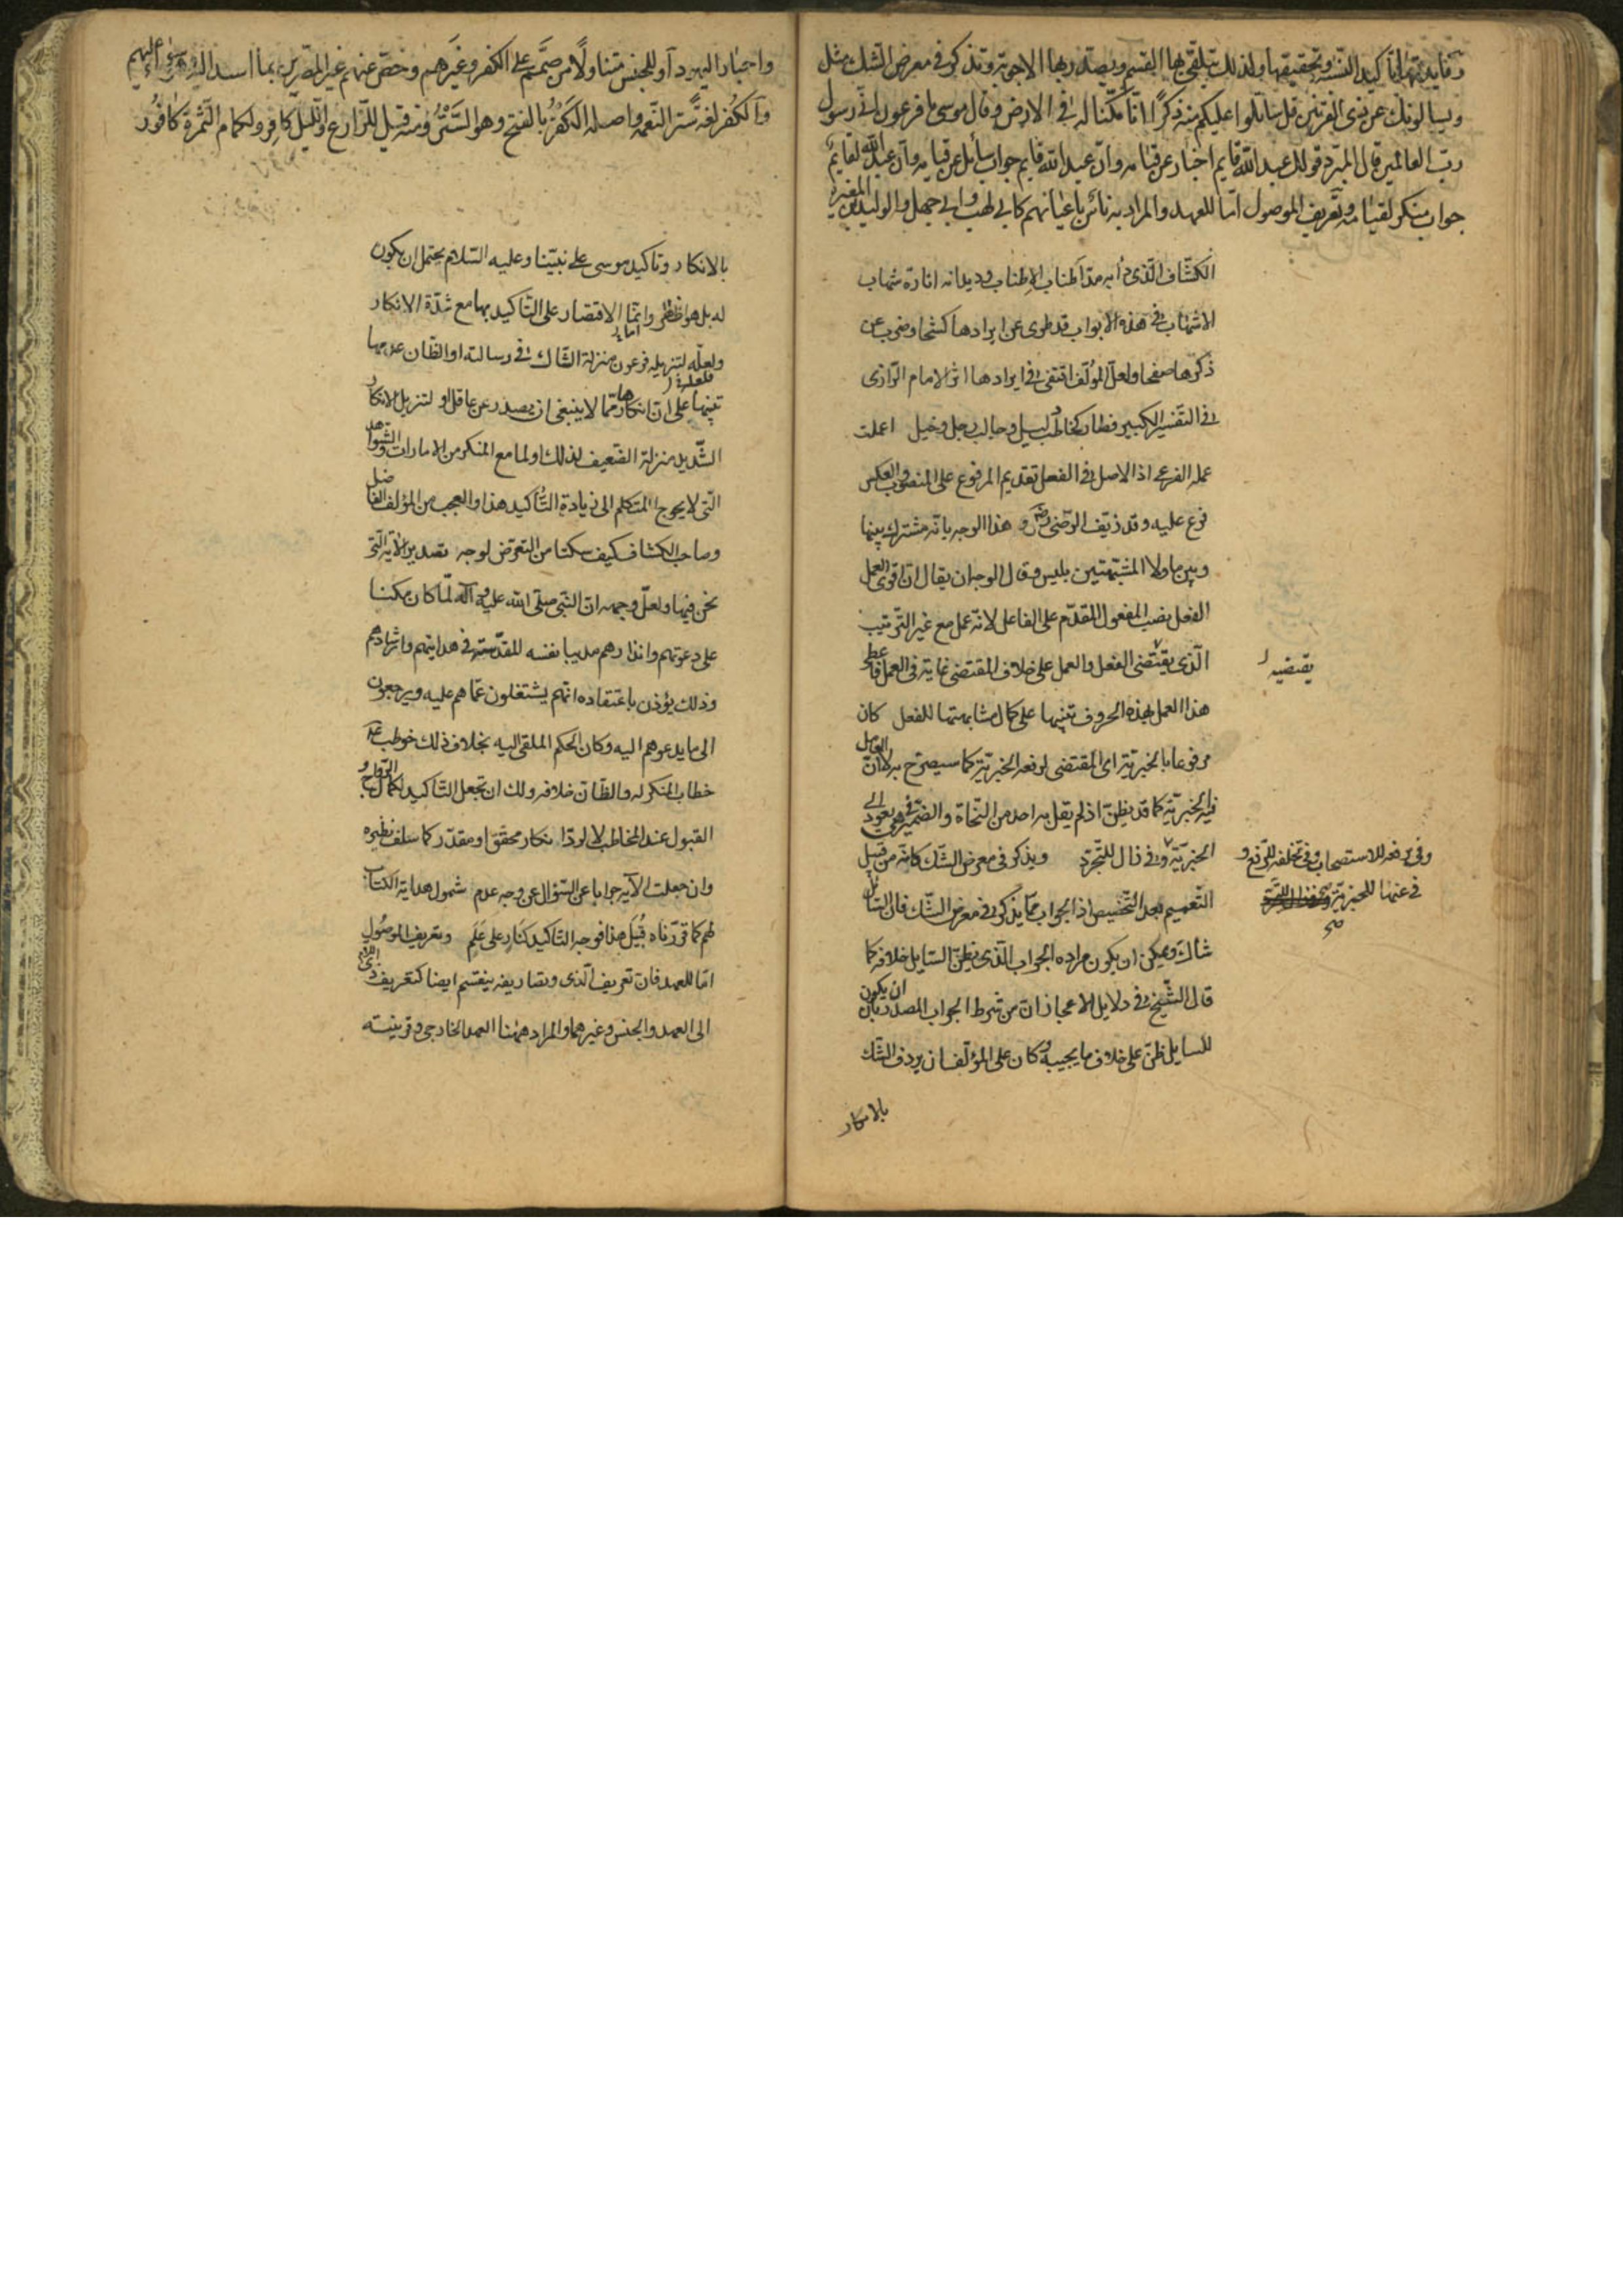 وفايدتها تاكيد النسبة وتحقيقها ولذلك يتلقى بها القسم ويصدر بها الاجوبة وتذكر في معرض الشك مثل
ويسالونك عن ذى القرنين قل ساتلوا عليكم منه ذكرا انا مكنا له في الارض وقال موسى يا فرعون انى رسول
رب العالمين قال المبرد قولك عبد الله قايم اخبار عن قيامه وان عبد الله قايم جواب سائل عن قيامه وان عبد الله لقايم
جواب منكر لقيامه وتعريف الموصول اما للعهد والمراد به ناس باعيانهم كابي لهب وابي جهل والوليد بن المغيرة
الكشاف الذى دأبه مد اطناب الاطناب وديدانه انارة شهاب
الاشهاب في هذه الابواب قد طوى عن ايرادها كشحا وضرب عن
ذكرها صفحا ولعل المؤلف اقتفى في ايرادها اثر الامام الرازى
في التفسير الكبير فصار كخاطب ليل وجالب رجل وخيل اعملت
عمله الفرعى اذ الاصل في الفعل تقديم المرفوع على المنصوب والعكس
فرع عليه وقد زيف الرضى رض هذا الوجه بانه مشترك بينها
وبين ما ولا المشبهتين بليس وقال الوجه ان يقال ان اقوى العمل
الفعل نصب المفعول المقدم على الفاعل لانه عمل مع غير الترتيب
الذى يقتضى الفعل والعمل على خلاف المقتضى غاية في العمل فاعطى
يقتضيه
هذا العمل لهذه الحروف تنبيها على كمال مشابهتها للفعل كان
مرفوعا بالخبرية اى المقتضى لرفعه الخبرية كما سيصرح به لا ان العامل
فيه الخبرية كما قد يظن اذ لم يقل به احد من النحاة والضمير في هى يعود الى
الخبرية وفي زال للتجرد ويذكر في معرض الشك كانه من قبيل
وفي رفعه للاستصحاب وفي تخلفه للرفع و
في عنها للخبرية
صح
التعميم بعد التخصيص اذ الجواب مما يذكر في معرض الشك فان السائل
شاك ويمكن ان يكون مراده الجواب الذى يظن السايل خلافه كما
قال الشيخ في دلايل الاعجاز ان من شرط الجواب المصدر بان ان يكون
للسايل ظن على خلاف ما يجيبه وكان على المؤلف ان يردف الشك
بالانكار
واحبار اليهود او للجنس متناولا من صمم على الكفر وغيرهم وخص عنهم غير المصرين بما اسند اليه سواء عليهم
والكفر لغة ستر النعمة واصله الكفر بالفتح وهو الستر ومنه قيل للزارع والليل كافر ولكمام الثمرة كافور
بالانكار وتاكيد موسى على نبينا وعليه السلام يحتمل ان يكون
له بل هو اظهر وانما الاقتصار على التاكيد بها مع شدة الانكار
ولعله لتنزيله فرعون منزلة الشاك في رسالته او الظان عدمها
تنبيها على ان انكارها مما لا ينبغى ان يصدر عن عاقل او لتنزيل الانكار
الشديد منزلة الضعيف لذلك او لما مع المنكر من الامارات والشواهد
التى لا يحوج المتكلم الى زيادة التاكيد هذا والعجب من المؤلف الفاضل
وصاحب الكشاف كيف سكتا من التعرض لوجه تصدير الآية التى
نحن فيها ولعل وجهه ان النبى صلى الله عليه وآله لما كان مكبا
على دعوتهم وانذارهم مديبا نفسه المقدسة في هدايتهم وارشادهم
وذلك يؤذن باعتقاده انهم يشتغلون عما هم عليه ويرجعون
الى ما يدعوهم اليه وكان الحكم الملقى اليه بخلاف ذلك خوطب
خطاب المنكر له والظان خلافه ولك ان تجعل التاكيد لكمال الرواج و
القبول عند المخاطب لا لرد انكار محقق او مقدر كما سلف نظيره
وان جعلت الآية جوابا عن السؤال عن وجه عدم شمول هداية الكتاب
لهم كما قررناه قبيل هذا فوجه التاكيد كنار على علم وتعريف الموصول
اما للعهد فان تعريف الذى وتصاريفه ينقسم ايضا كتعريف ذى اللام
الى العهد والجنس وغيرهما والمراد ههنا العهد الخارجى وقرينته